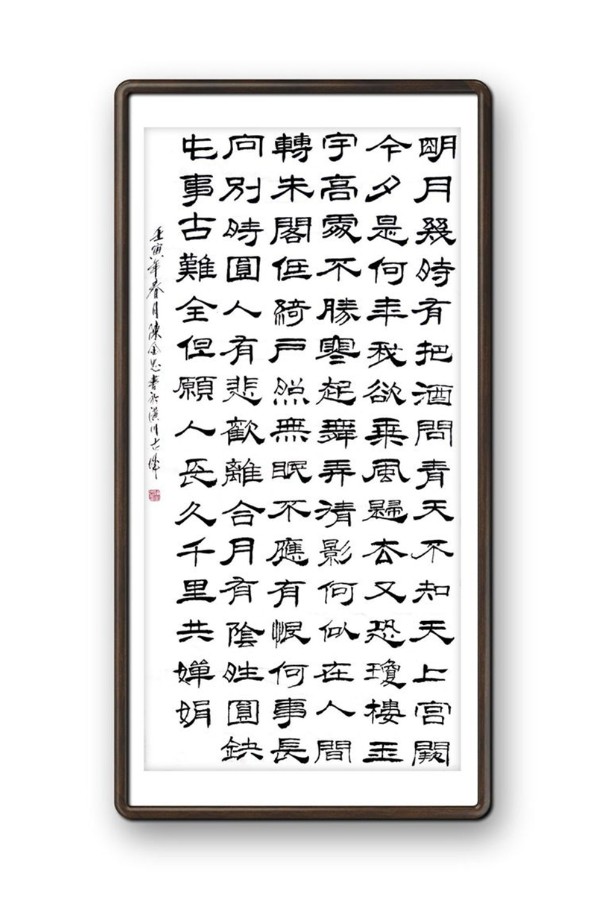 明月幾時有把酒問青天不知天上宮闕
今夕是何年我欲乘風歸去又恐瓊樓玉
宇高處不勝寒起舞弄清影何似在人間
轉朱閣低綺戶照無眠不應有恨何事長
向別時圓人有悲歡離合月有陰晴圓缺
此事古難全但願人長久千里共嬋娟
壬寅年春月陳金忠書於漢川古